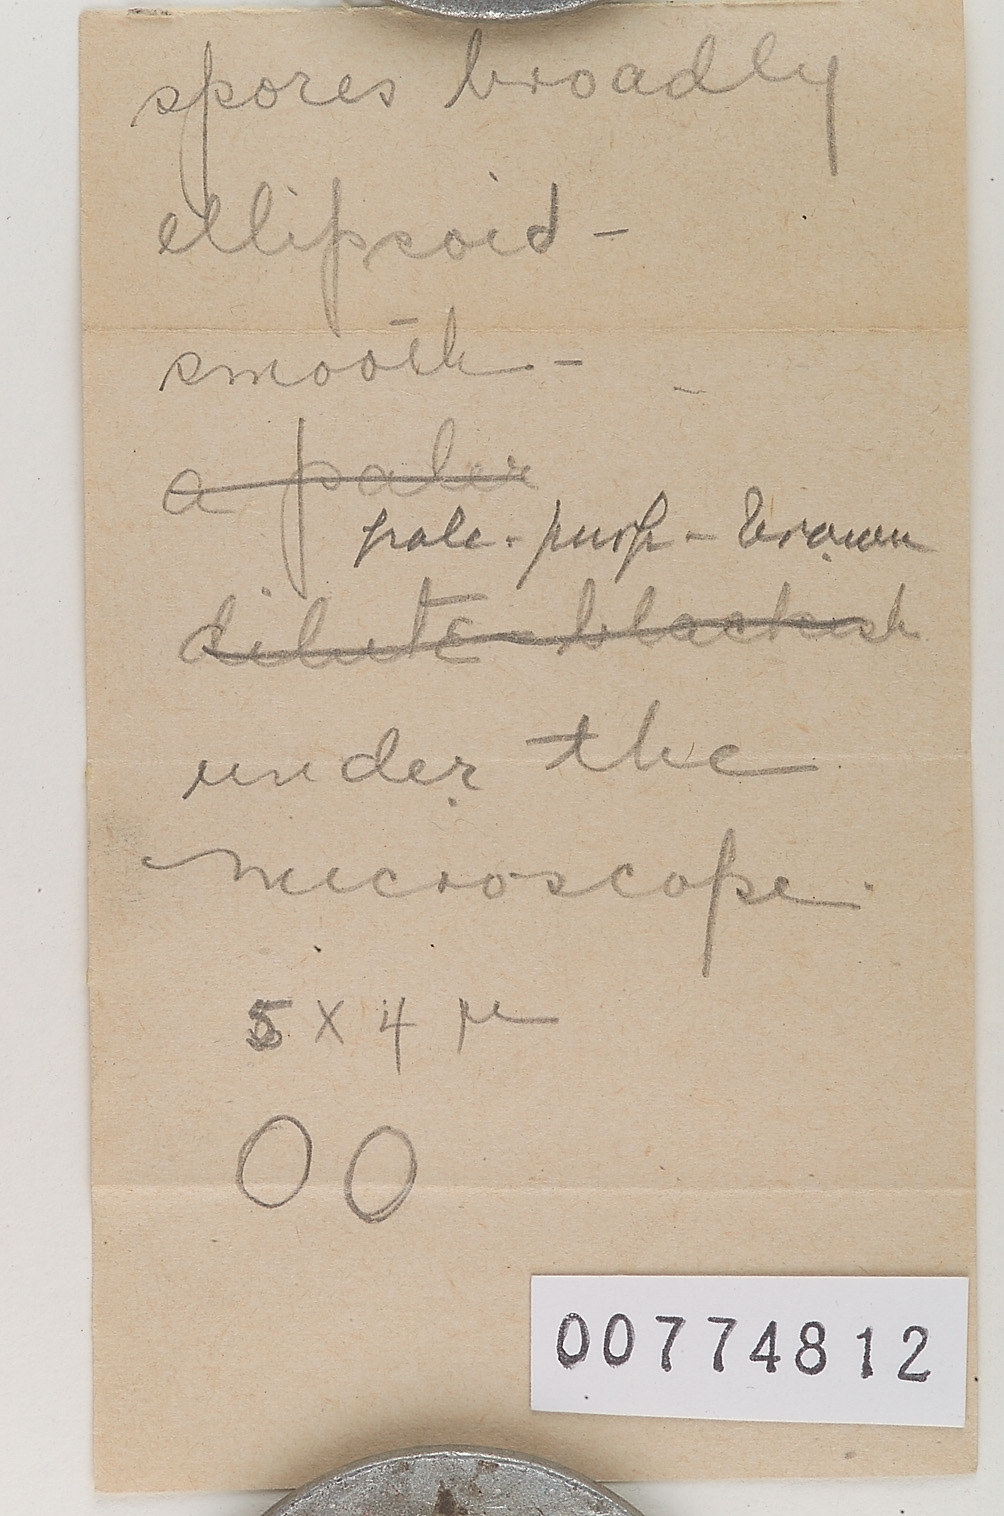 spores broadly
ellipsoid -
smooth -
a paler
pale - purp - brown
dilute blackish
under the
microscope.
5 X 4 µ
00774812